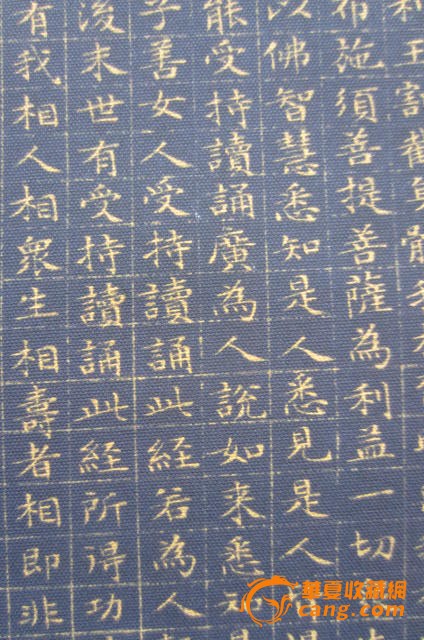 王割
布施須善提善薩為利益一切
以佛智慧悉知是人悉見是人
能受持讀誦廣為人說如来悉知是
子善女人受持讀誦此経若為人
後末世有受持讀誦此経所得功
有我相人相衆生相壽者相即非
華夏收藏網
cang.com